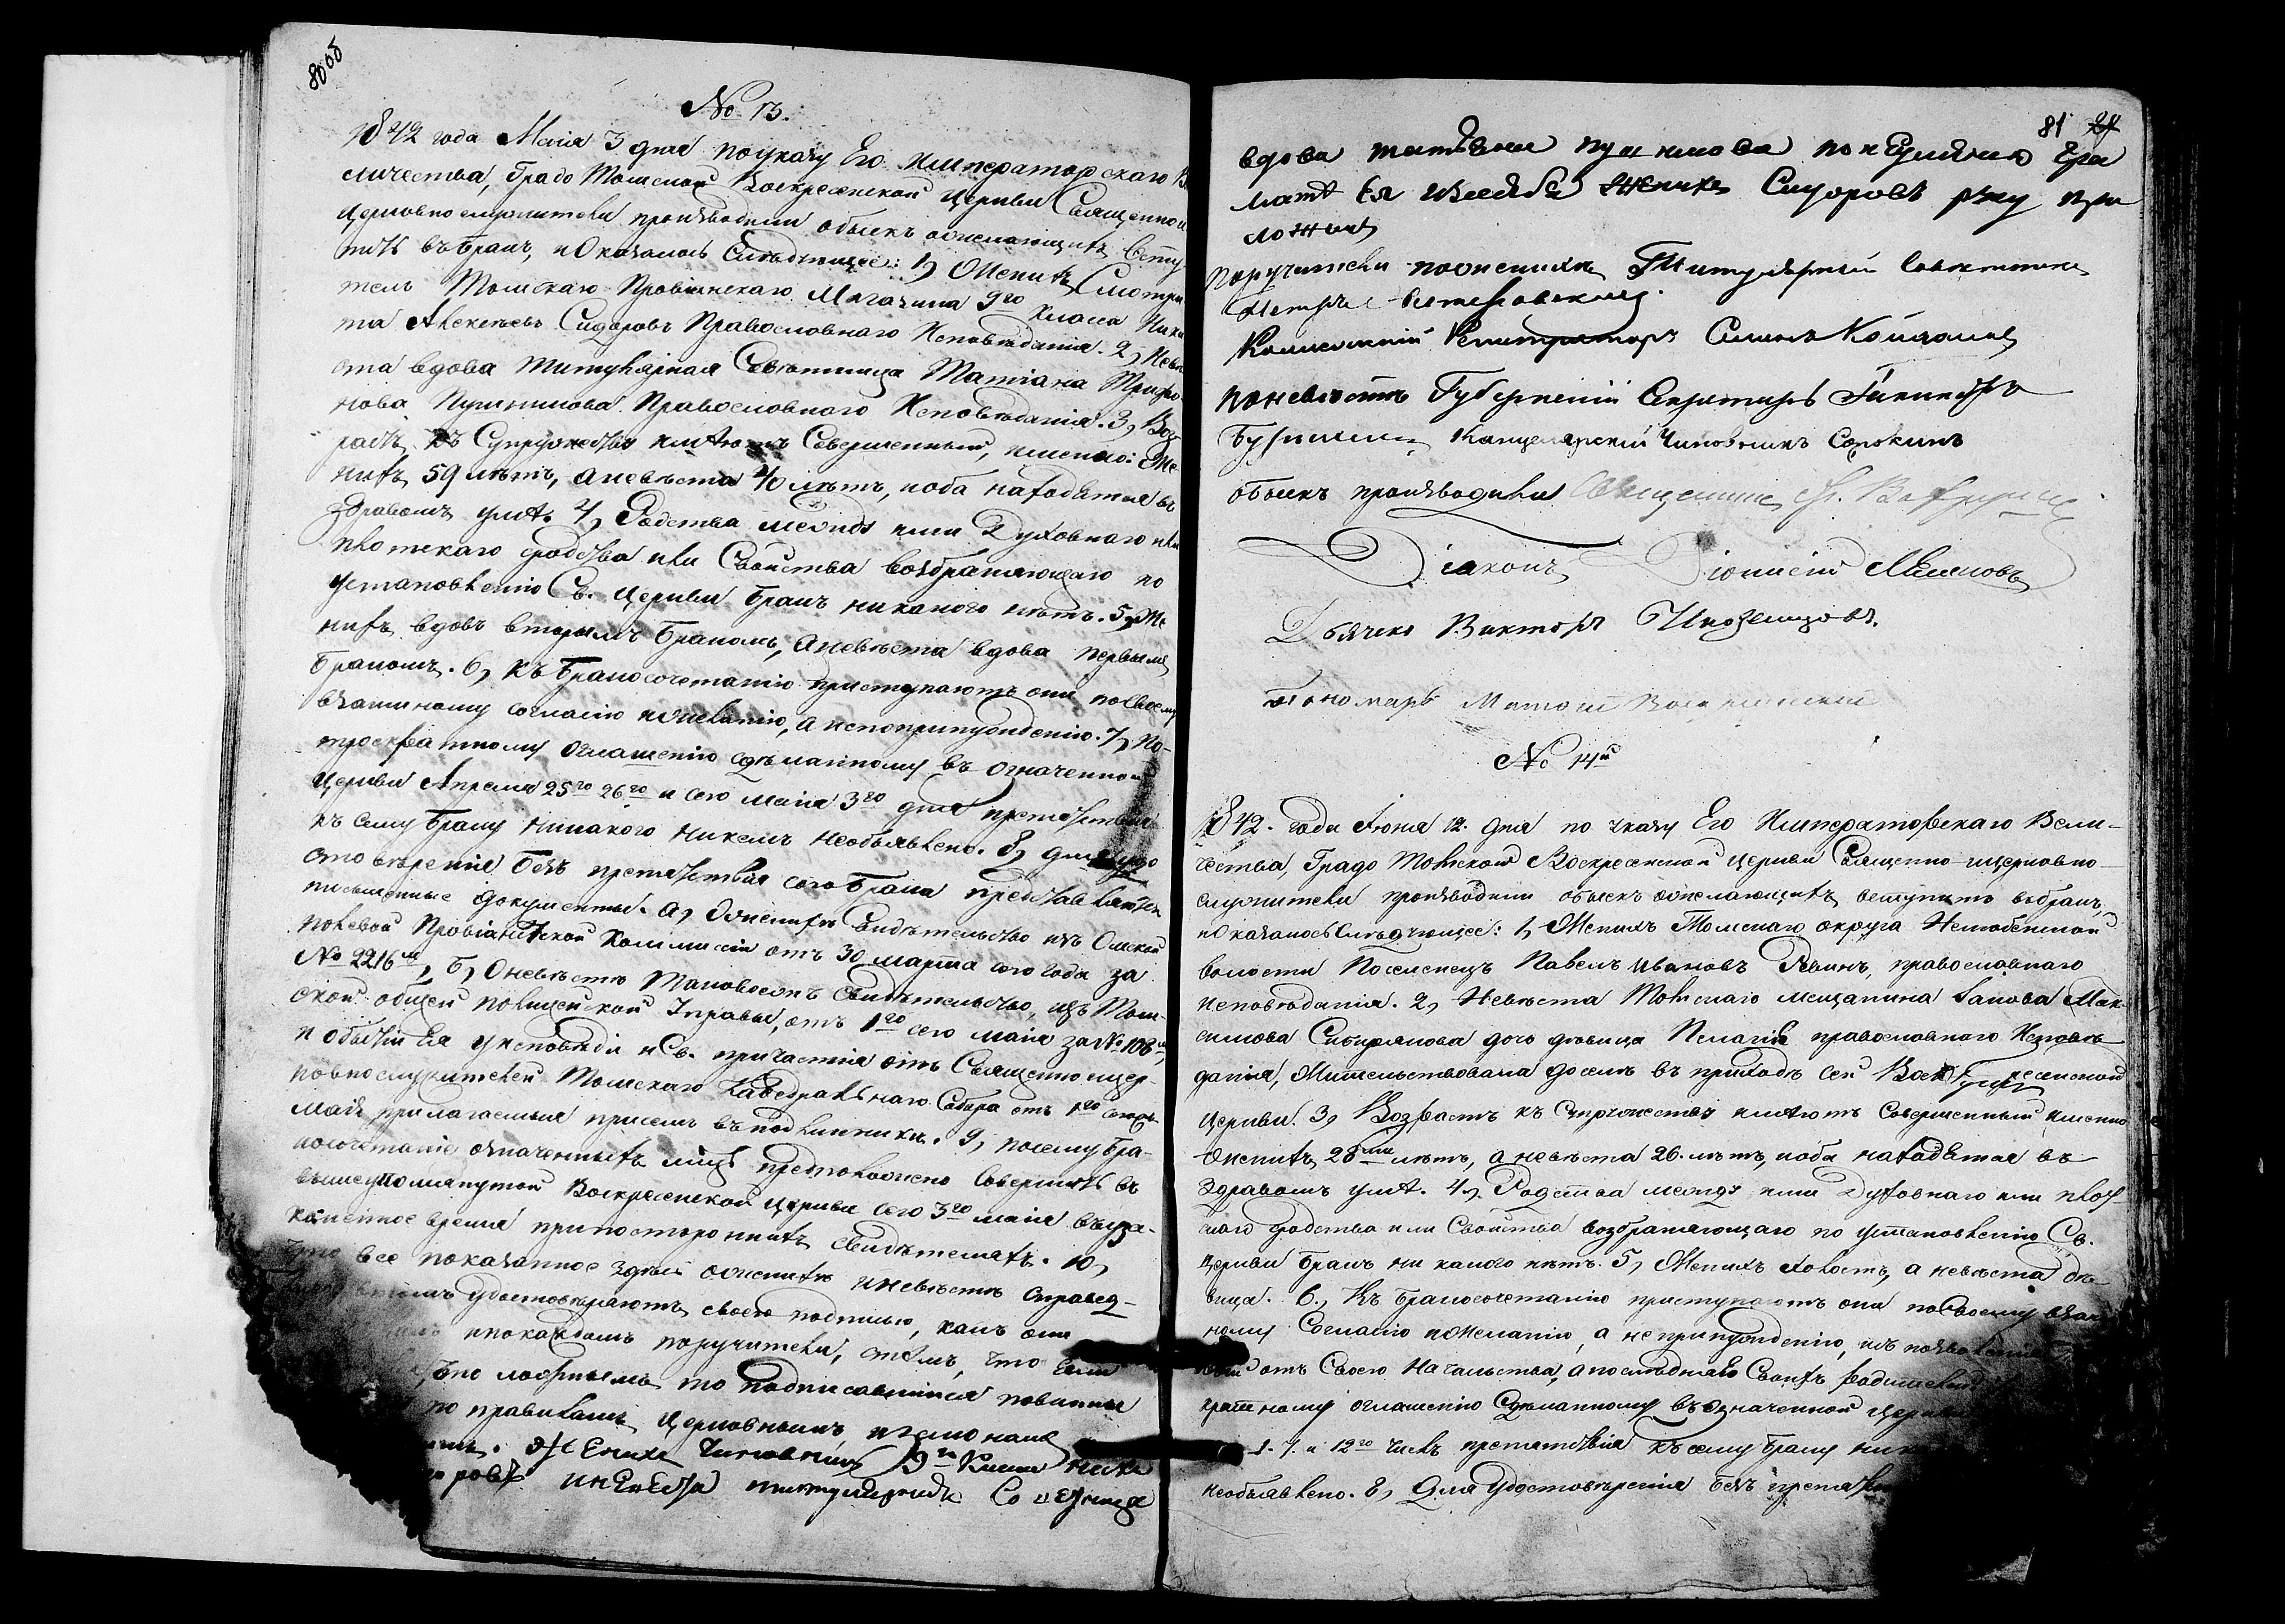 80 об
№ 13.
1842 года Маія 3 дня по указу Его Императорскаго Ве
личества, Градо Томской Воскресенской Церкви Священно и
Церковнослужители производили обыскъ о желающихъ всту
пить въ бракъ, и оказалось следующее: 1, Женихъ Смотри
тель Томскаго Провіянскаго Магазина 9го класса Ники
та Алексѣевъ Сидоровъ Православнаго Исповѣданія. 2, Невѣ
ста вдова Титулярная Совѣтница Татіана Трифо
нова Пушникова Православного Исповѣданія. 3, Воз
растъ къ Супружеству имѣютъ Совершенный, именно: Же
нихъ 59 лѣтъ, а невѣста 40 лѣтъ, и оба находятся въ
здравомъ умѣ. 4, Родства между ими Духовнаго или
плотскаго родства или Свойства возбраняющаго по
установленію Св. Церкви бракъ никакого нѣтъ. 5, Же
нихъ вдовъ вторымъ бракомъ, а невѣста вдова первымъ
бракомъ. 6, Къ бракосочетанію приступаютъ они по своему
взаимному согласію и желанію, а не по принужденію. 7, По
троекратному оглашенію сдѣланному въ означенной
Церкви Апреля 25го 26го и сего маія 3го дня препятствія
къ сему браку никакого никемъ необъявлено. 8, Для удо
стовѣренія безъ препятствія сего брака представляются
письменные документы. а, О женихѣ Свидѣтельство изъ Омской
полевой Провіантской Коммиссіи отъ 30 марта сего года за
№ 2216мъ, б, О невѣсте таковоежъ Свидѣтельство, изъ Том
ской общей полицейской Управы, отъ 1го сего маія за № 108
и о бытіи Ея у исповѣди и Св. причастія отъ Священно и цер
ковнослужителей Томскаго Кафедральнаго Собора отъ 1го сего
маія, прилагаемыя присемъ въ подлинникѣ. 9, посему бра-
косочетаніе означенныхъ лицъ предположено Совершить въ
вышеупомянутой Воскресенской Церкви сего 3го маія въ ука-
занное время при постороннихъ свидѣтеляхъ. 10,
Что все показанное здѣсь о женихѣ и невѣстѣ справед-
удостовѣряютъ своею подписью, какъ они
и по каждомъ поручители, съ тѣмъ, что если
что ложнымъ, то подписавшіися повинны
по правиламъ Церковнымъ и законамъ
Женихъ Чиновникъ 9го Класса Ники
ровъ и невѣста титулярная Советница
81
вдова татьяна пушникова по неуменію гра
мате ея и за себя Жених Сидоровъ руку при
ложилъ
Поручители по женихѣ Титулярный Советникъ
Петръ Петровскій.
Коллежскій Регистраторъ
по невѣстѣ Губернскій Секретарь
Канцелярскій Чиновникъ Сорокинъ
обыскъ производили Священникъ
Діаконъ Діонисій
Дьячекъ Викторъ Иноземцовъ.
Пономарь
№ 14й
1842. года Іюня 12. дня по указу Его Императорскаго Вели-
чества, Градо Томской Воскресенской Церкви Священно и церковно-
служители производили обыскъ о желающихъ вступить въ бракъ,
и Оказалось Слѣдующее: 1, Женихъ Томскаго округа Нелюбенской
волости Поселенецъ Павелъ Ивановъ православнаго
исповѣданія. 2, Невѣста Томскаго мещанина Іакова Мак-
симова Сибирякова дочь дѣвица Пелагія православного Исповѣ-
данія, Жительствовала доселѣ въ приходѣ сей Воскресенской
Церкви. 3, Возрастъ къ Супружеству имѣютъ Совершенный, именно
Женихъ 28ми лѣтъ, а невѣста 26. лѣтъ, и оба находятся въ
здравомъ умѣ. 4, Родства между ими Духовнаго или плот-
скаго родства или Свойства возбраняющаго по установленію Св.
Церкви бракъ никакого нѣтъ. 5, Женихъ холостъ, а невѣста дѣ-
вица. 6, Къ бракосочетанію приступаютъ они по Своему взаи
ному Согласію и желанію, а не принужденію, изъ позволенія
отъ Своего Начальства, а последняя Своихъ родителей
кратному оглашенію Сдѣланному въ означенной Церкви
1. 7. и 12го числъ препятствія къ сему браку ник
необъявлено. 8, Для удостовѣренія безъ препят